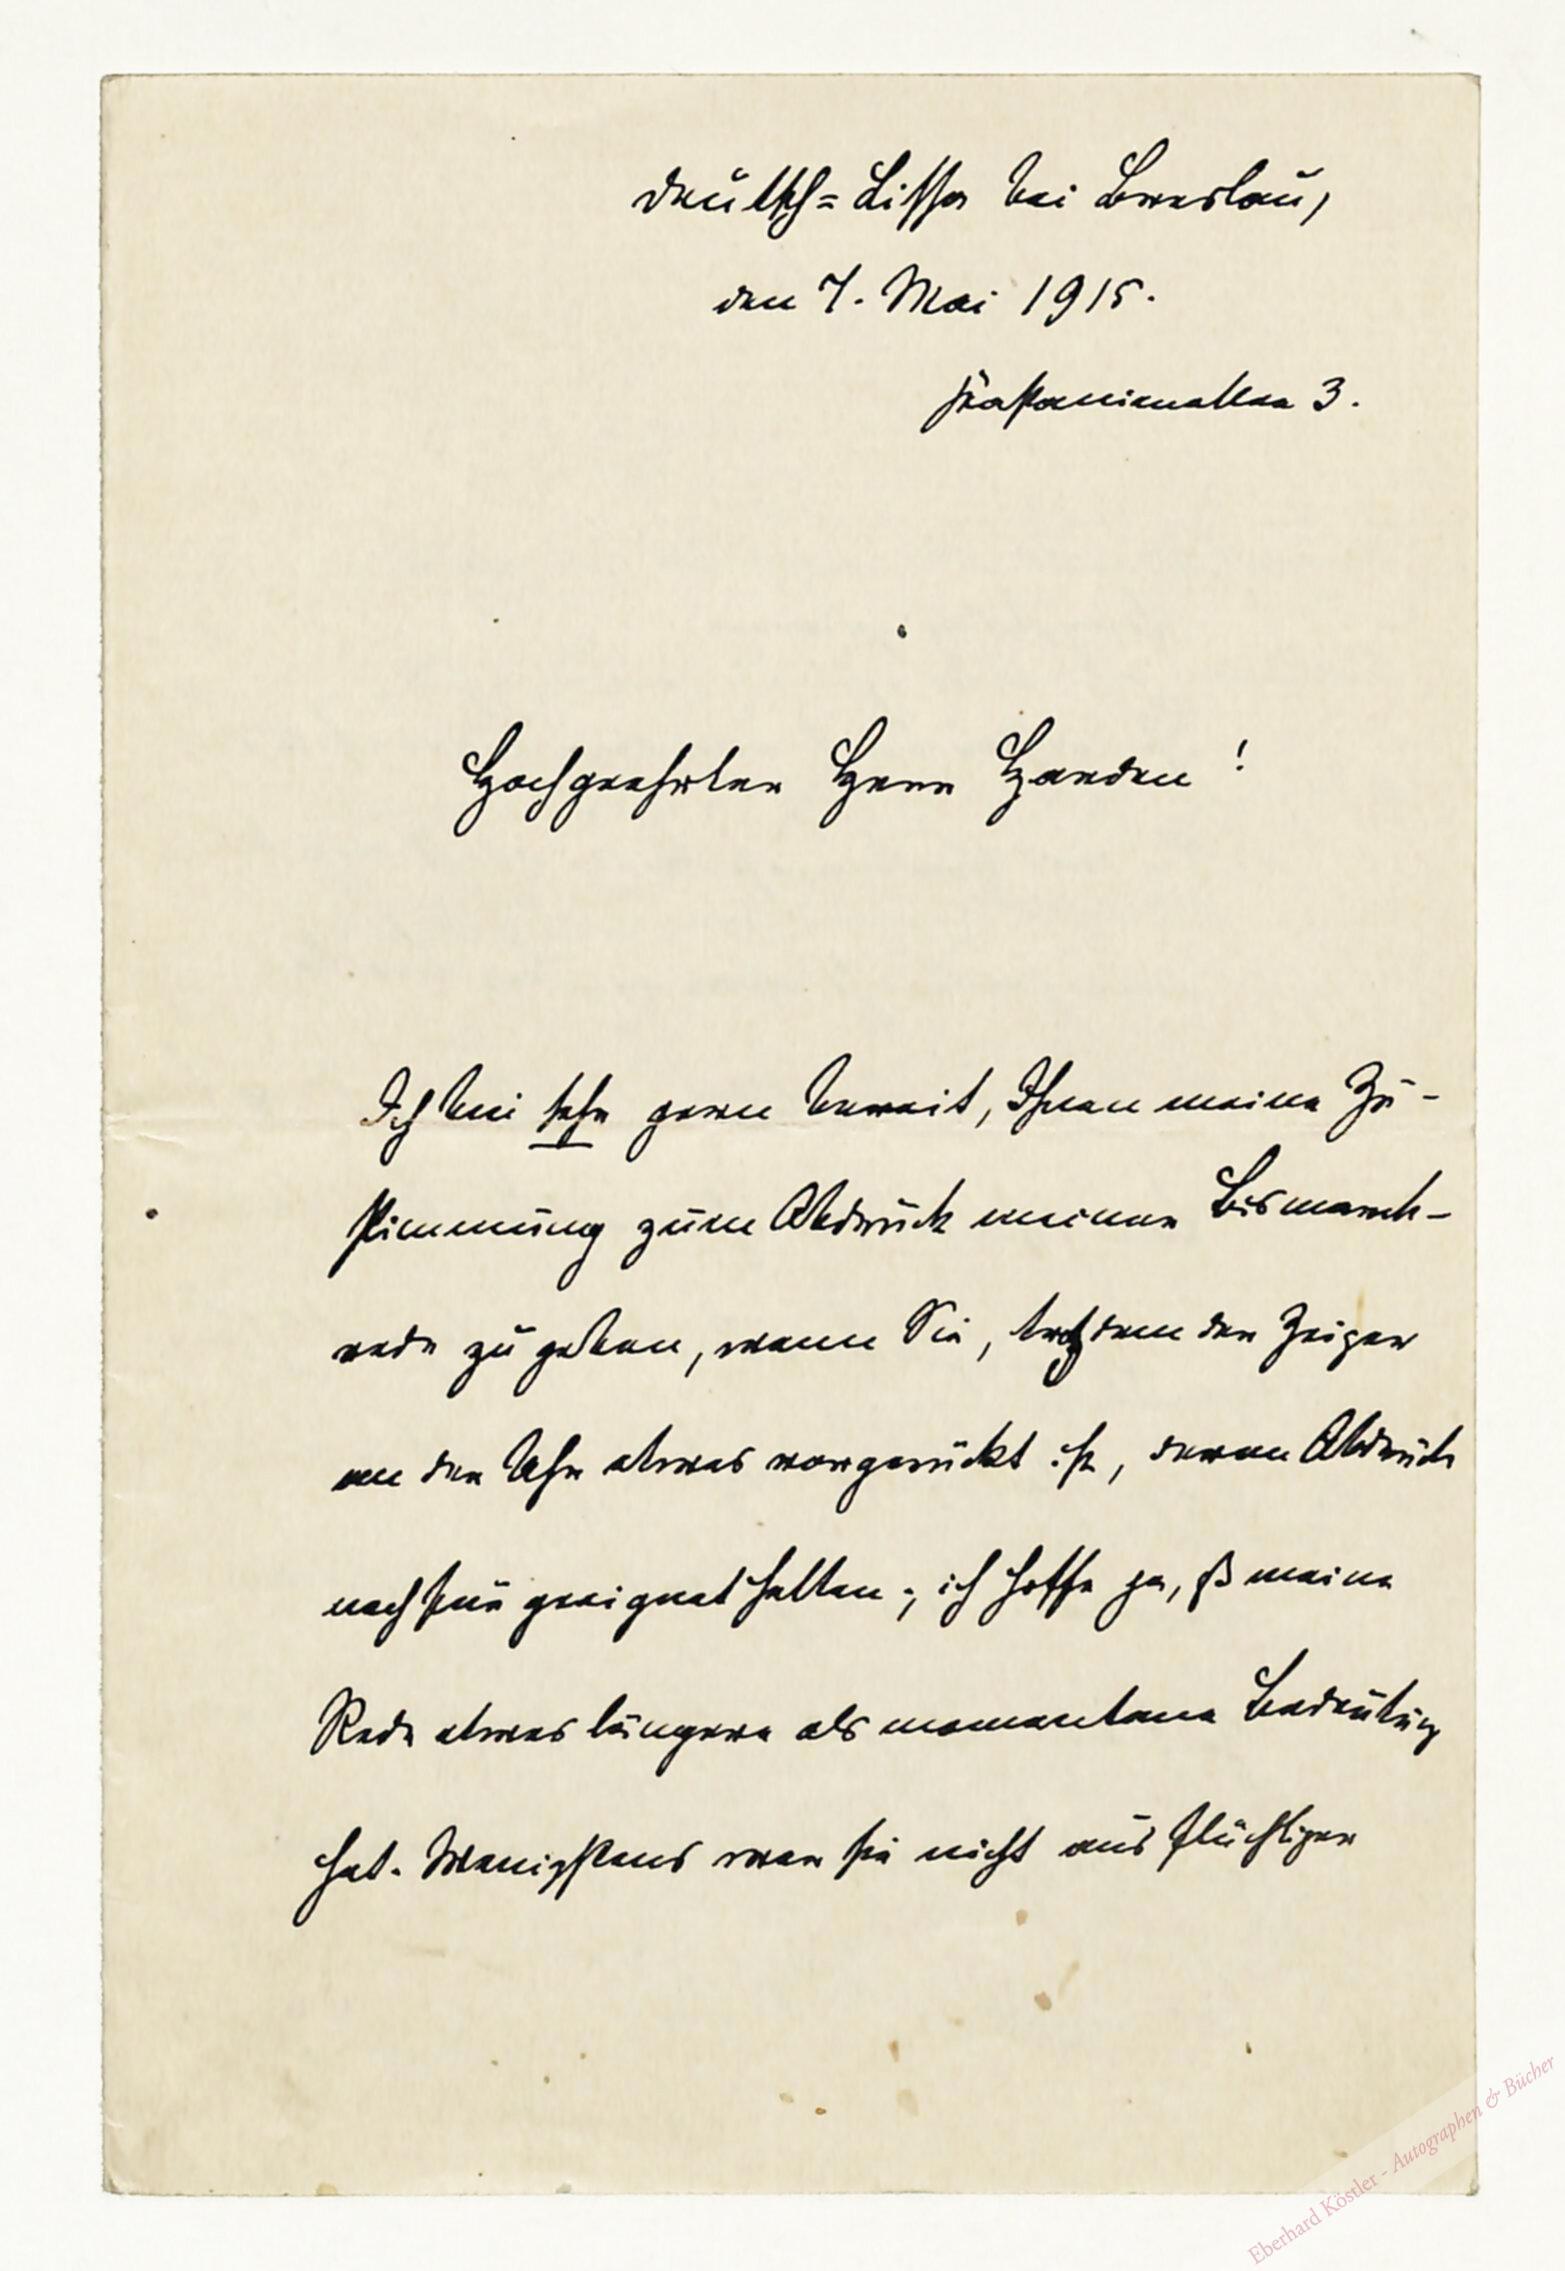 Deutsch=Lissa bei Breslau,
den 7. Mai 1915.
Kastanienallee 3.
Hochgeehrter Herr Harden!
Ich bin sehr gern bereit, Ihnen meine Zu-
stimmung zum Abdruck meiner Bismarck-
rede zu geben, wenn Sie, trotzdem der Zeiger
an der Uhr etwas vorgerückt ist, deren Abdruck
noch für geeignet halten; ich hoffe ja, ß meine
Rede etwas längere als momentane Bedeutung
hat. Wenigstens war sie nicht aus flüchtiger
Eberhard Köstler - Autographen & Bücher